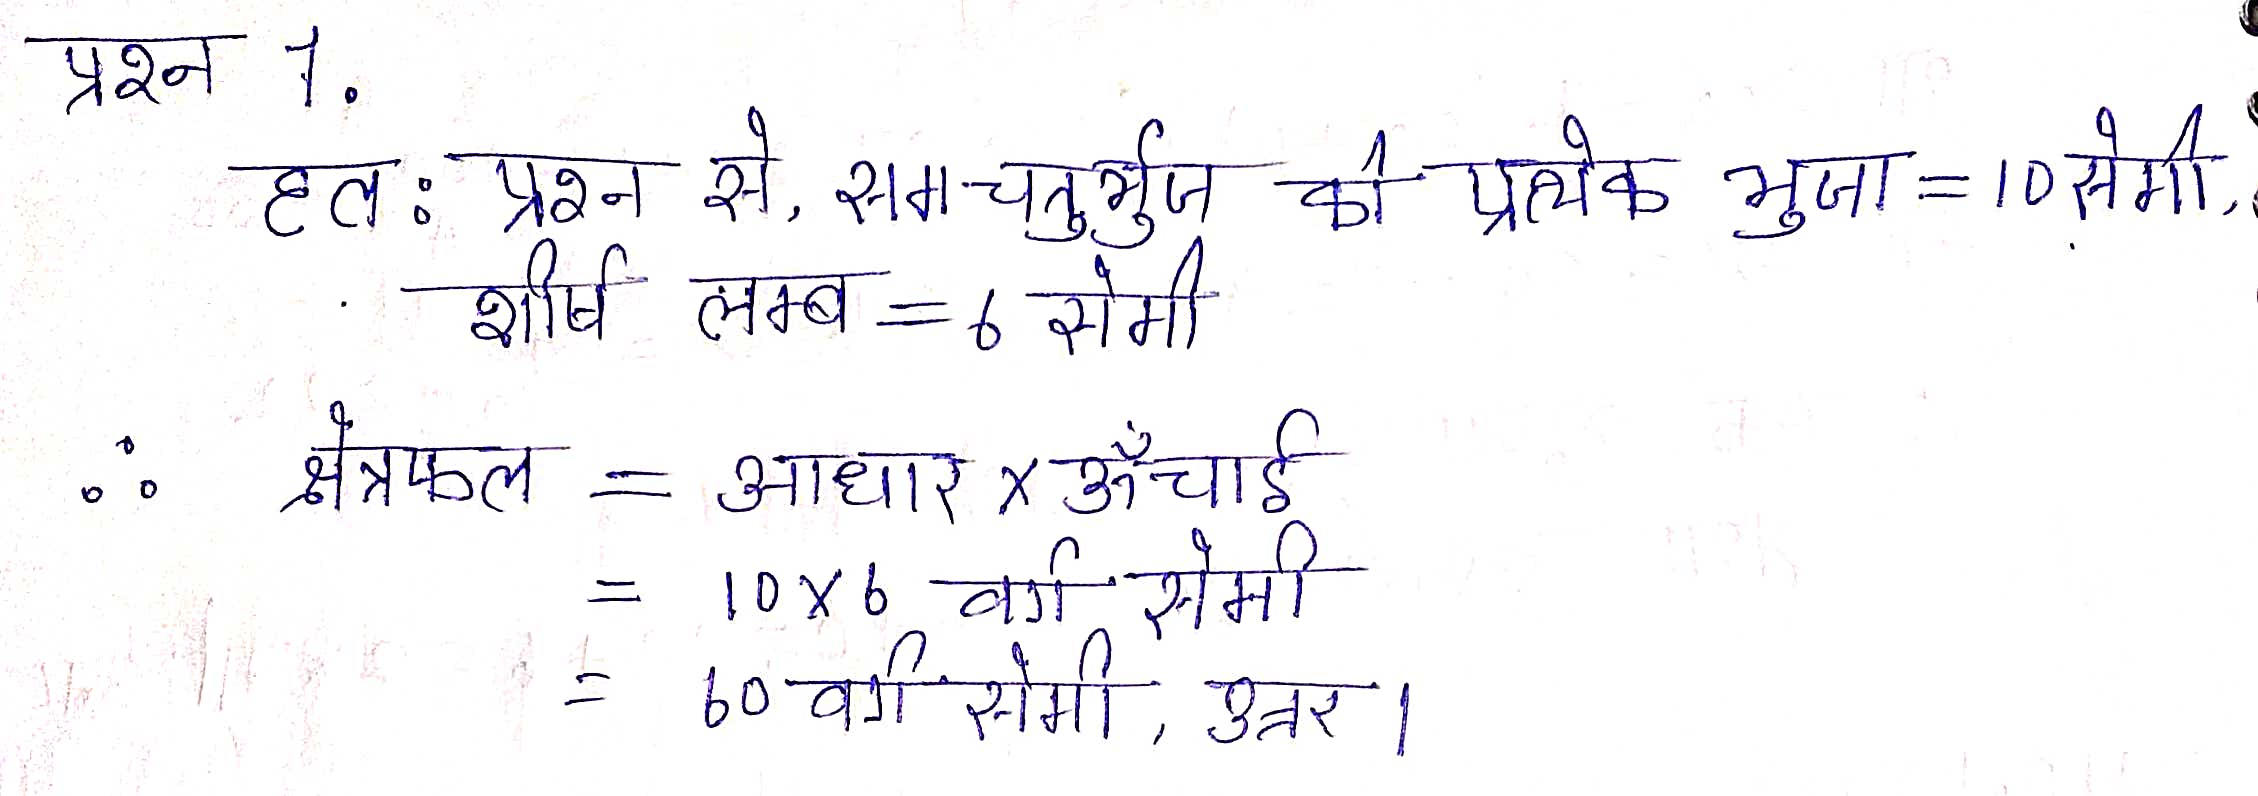 प्रश्न 1.
हल: प्रश्न से, समचतुर्भुज की प्रत्येक भुजा = 10 सेमी,
शीर्ष लम्ब = 6 सेमी
∴ क्षेत्रफल = आधार × ऊँचाई
= 10 × 6 वर्ग सेमी
= 60 वर्ग सेमी, उत्तर।